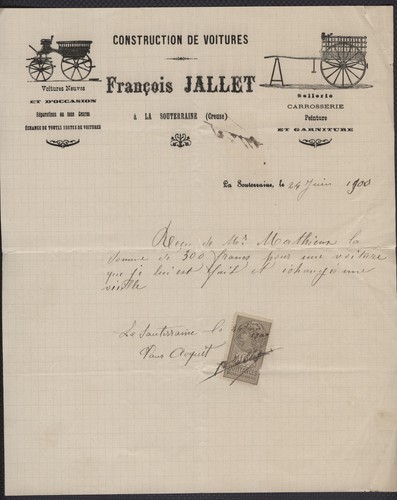 CONSTRUCTION DE VOITURES
François JALLET
A LA SOUTERRAINE (Creuse)
Voitures Neuves
ET D'OCCASION
Réparations en tous Genres
ÉCHANGE DE TOUTES SORTES DE VOITURES
Sellerie
CARROSSERIE
Peinture
ET GARNITURE
La Souterraine, le 24 Juin 1900
Reçu de Mr Mathieu la
somme de 300 francs pour une voiture
que je lui est fait et échangé une
vieille
La Souterraine le
Pour Acquit